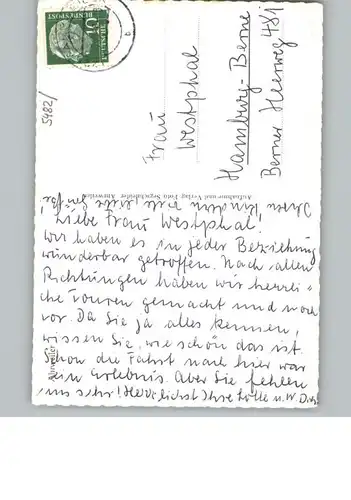 DEUTSCHE BUNDESPOST
10
5482/
Frau
Westphal
Hamburg-Berne
Berner Heerweg 481
Aufnahme und Verlag Foto
Ahrweiler
Ihren Kindern viele liebe Grüße!
Liebe Frau Westphal!
Wir haben es in jeder Beziehung
wunderbar getroffen. Nach allen
Richtungen haben wir herrli-
che Touren gemacht und noch
vor. Da Sie ja alles kennen,
wissen Sie, wie schön das ist.
Schon die Fahrt nach hier war
ein Erlebnis. Aber Sie fehlen
uns sehr! Herzlichst Ihre Lotte u. W.